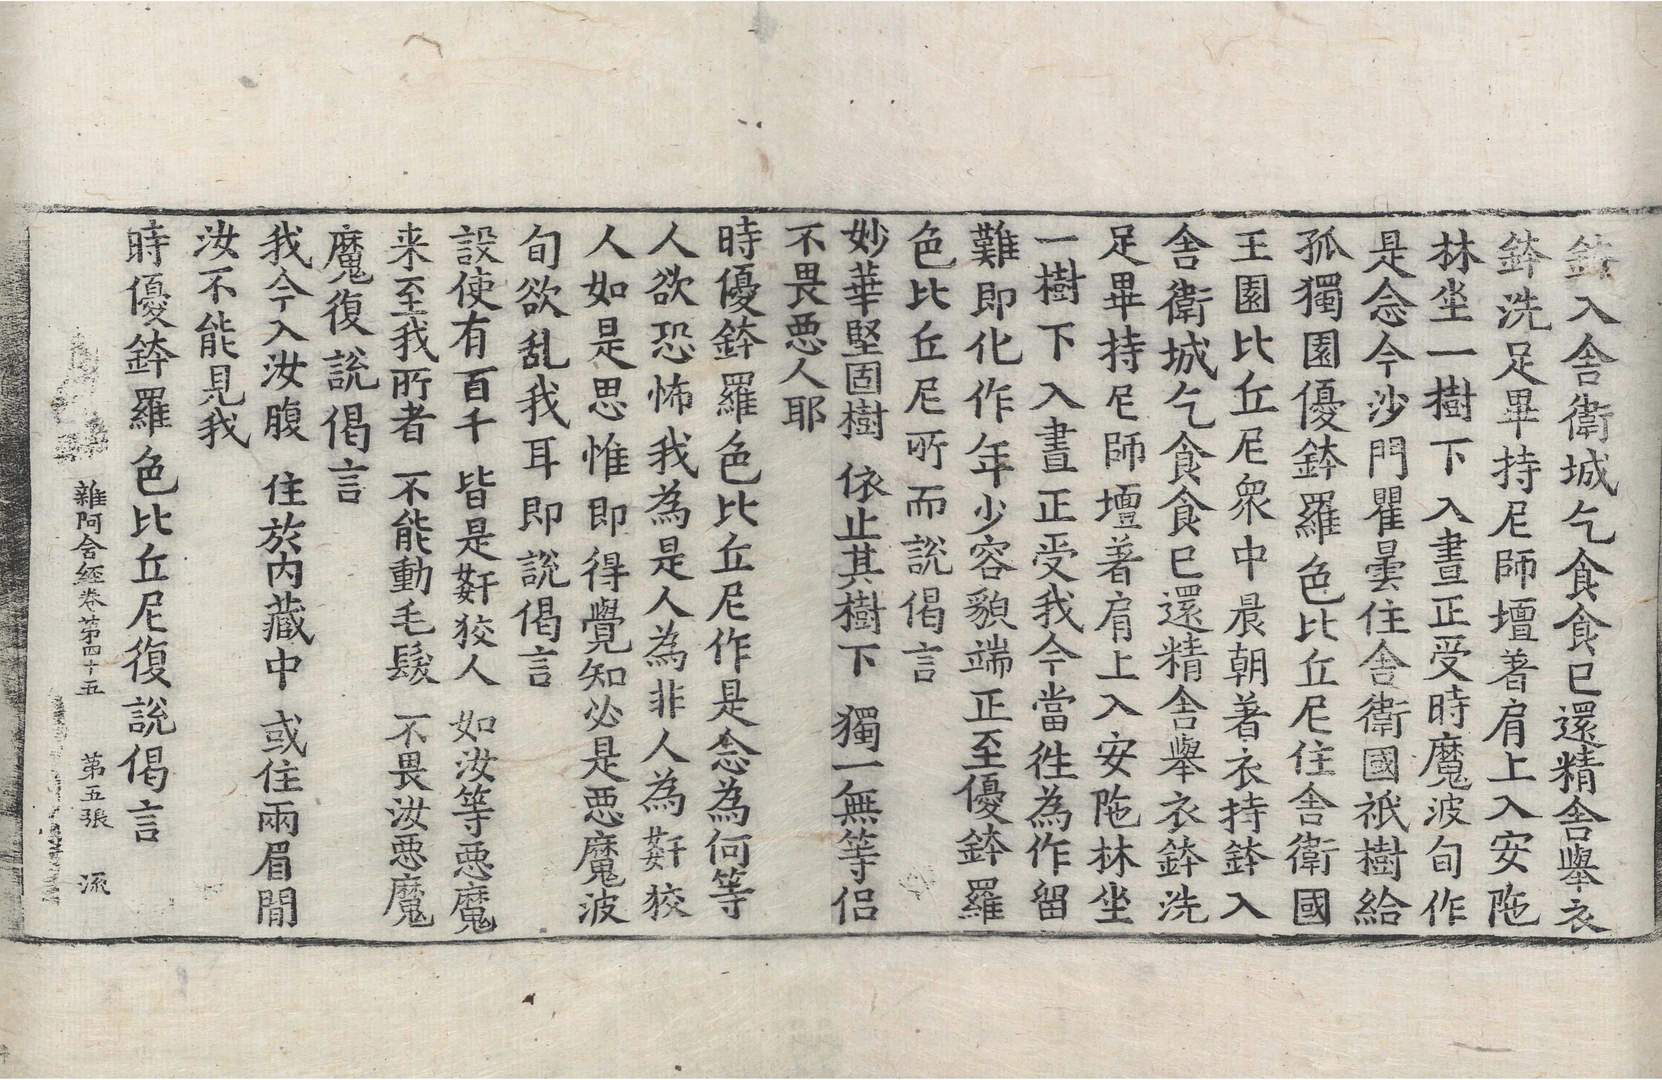 鉢入舍衛城乞食食已還精舍舉衣
鉢洗足畢持尼師壇著肩上入安陁
林坐一樹下入晝正受時魔波旬作
是念今沙門瞿曇住舍衛國祇樹給
孤獨園優鉢羅色比丘尼住舍衛國
王園比丘尼衆中晨朝著衣持鉢入
舍衛城乞食食已還精舍舉衣鉢洗
足畢持尼師壇著肩上入安陁林坐
一樹下入晝正受我今當徃為作留
難即化作年少容貌端正至優鉢羅
色比丘尼所而說偈言
妙華堅固樹 依止其樹下 獨一無等侣
不畏惡人耶
時優鉢羅色比丘尼作是念為何等
人欲恐怖我為是人為非人為姧狡
人如是思惟即得覺知必是惡魔波
旬欲乱我耳即說偈言
設使有百千 皆是姧狡人 如汝等惡魔
来至我所者 不能動毛髮 不畏汝惡魔
魔復說偈言
我今入汝腹 住於內藏中 或住兩眉間
汝不能見我
時優鉢羅色比丘尼復說偈言
雜阿含經卷第四十五 第五張